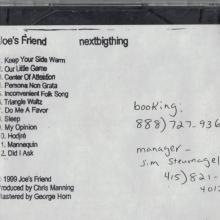 Joe's Friend nextbigthing
1. Keep Your Side Warm
2. Our Little Game
3. Center Of Attention
4. Persona Non Grata
5. Inconvenient Folk Song
6. Triangle Waltz
7. Do Me A Favor
8. Sleep
9. My Opinion
10. Hodjré
11. Mannequin
12. Did I Ask
© 1999 Joe's Friend
Produced by Chris Manning
Mastered by George Horn
booking:
888) 727-936
manager -
Jim Steurnagel
415) 821-
4012